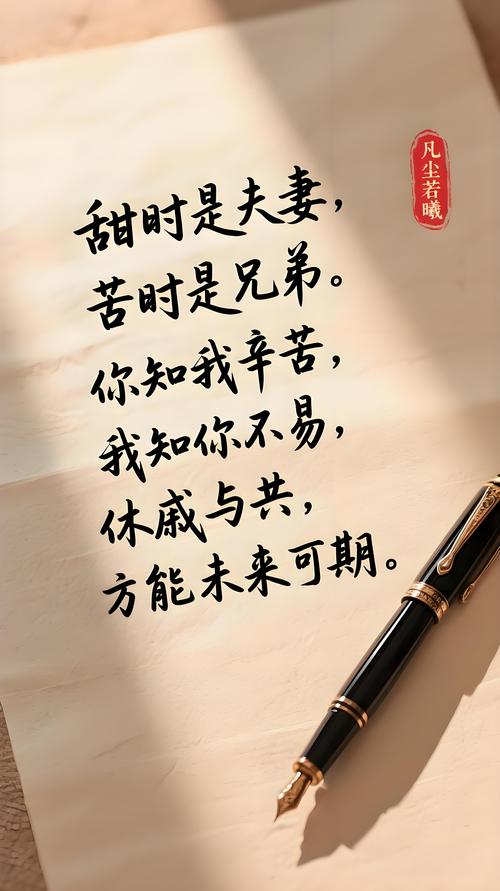 甜时是夫妻，
苦时是兄弟。
你知我辛苦，
我知你不易，
休戚与共，
方能未来可期。
凡尘若曦